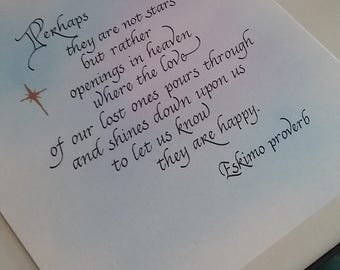 Perhaps
they are not stars
but rather
openings in heaven
where the love
of our lost ones pours through
and shines down upon us
to let us know
they are happy.
Eskimo proverb